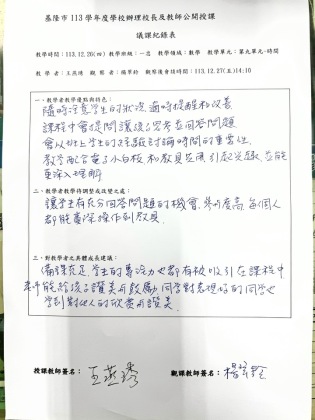 基隆市 113 學年度學校辦理校長及教師公開授課
議課紀錄表
教學時間：113.12.26(四) 教學班級：一忠 教學領域：數學 教學單元：第九單元-時間
教 學 者：王燕琇 觀 察 者：楊翠鈴 觀察後會談時間：113.12.27(五)14:10
一、教學者教學優點與特色：
隨時注意學生的狀況,適時提醒和改善
課程中會提問讓孩子思考並回答問題
會以班上學生的經驗討論時間的重要性
教學配合電子小白板和教具應用,引起興趣,並能
更深入理解
二、教學者教學待調整或改變之處：
讓學生有充分回答問題的機會,參與度高,每個人
都能實際操作到教具
三、對教學者之具體成長建議：
備課充足,學生的專注力也都有被吸引,在課程中
老師能給孩子讚美與鼓勵,同學對表現好的同學也
學到對他人的欣賞與讚美
授課教師簽名：王燕琇
觀課教師簽名：楊翠鈴